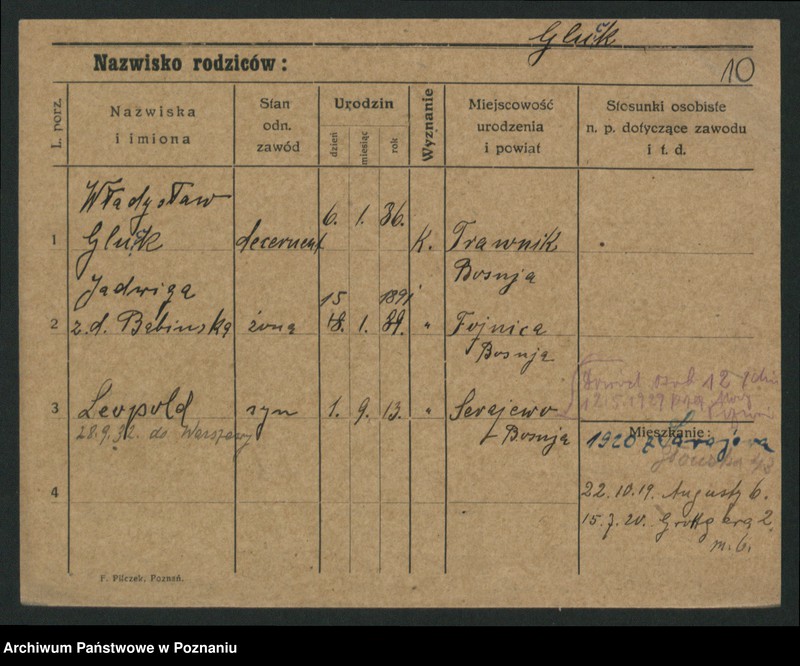 Gluck
10
Nazwisko rodziców:
L. porz.
Nazwiska
i imiona
Stan
odn.
zawód
Urodzin
dzień
miesiąc
rok
Wyznanie
Miejscowość
urodzenia
i powiat
Stosunki osobiste
n. p. dotyczące zawodu
i t. d.
Władysław
1 Gluck decernent 6. 1. 86. K. Trawnik
Bosnja
Jadwiga 15 1891
2 z.d. Babinska żona 18. 1. 89. " Fojnica
Bosnja
12
12.5.1929
3 Leopold syn 1. 9. 13. " Serajewo
Bosnja
28.9.32. do Warszawy
Mieszkanie:
1920 z Sarajewa
4
22.10.19. Augusty 6.
15.7.20. 2
m. 6.
F. Pilczek, Poznań.
Archiwum Państwowe w Poznaniu